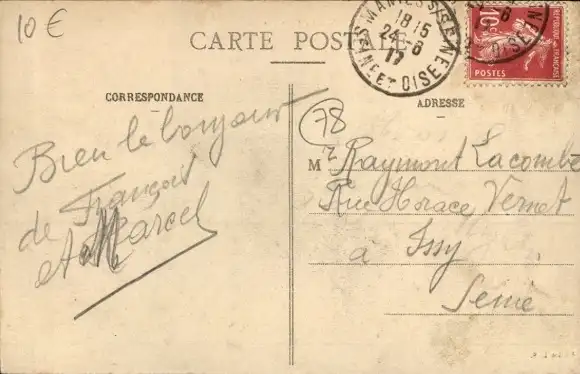 10 €
CARTE POSTALE
MANTES S/SEINE
18 15
24-6
17
SEINE ET OISE
10c
POSTES
CORRESPONDANCE
ADRESSE
78
Bien le bonjour
de François
et Marcel
Mr Raymont Lacombe
Rue Horace Vernet
à Issy
Seine